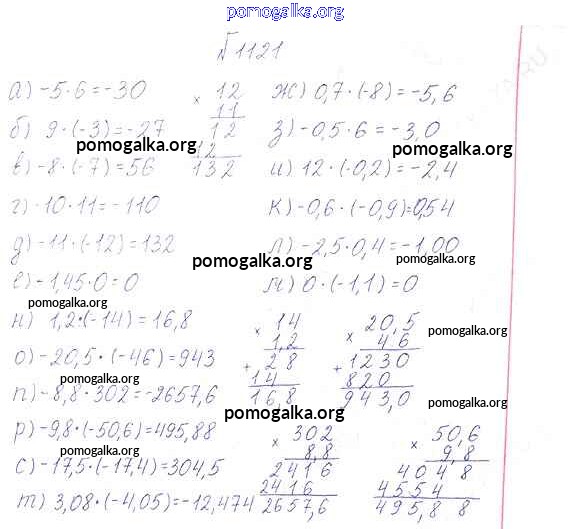 pomogalka.org
№1121
а) -5·6=-30
ж) 0,7·(-8)=-5,6
б) 9·(-3)=-27
з) -0,5·6=-3,0
× 12
11
12
12
132
pomogalka.org
pomogalka.org
в) -8·(-7)=56
и) 12·(-0,2)=-2,4
г) -10·11=-110
к) -0,6·(-0,9)=0,54
д) -11·(-12)=132
л) -2,5·0,4=-1,00
pomogalka.org
pomogalka.org
е) -1,45·0=0
м) 0·(-1,1)=0
pomogalka.org
н) 1,2·(-14)=16,8
× 14
1,2
+ 28
14
16,8
× 20,5
46
+ 1230
820
943,0
pomogalka.org
о) -20,5·(-46)=943
pomogalka.org
п) -8,8·302=-2657,6
pomogalka.org
pomogalka.org
р) -9,8·(-50,6)=495,88
× 302
8,8
2416
2416
2657,6
× 50,6
9,8
4048
4554
495,88
pomogalka.org
с) -17,5·(-17,4)=304,5
т) 3,08·(-4,05)=-12,474